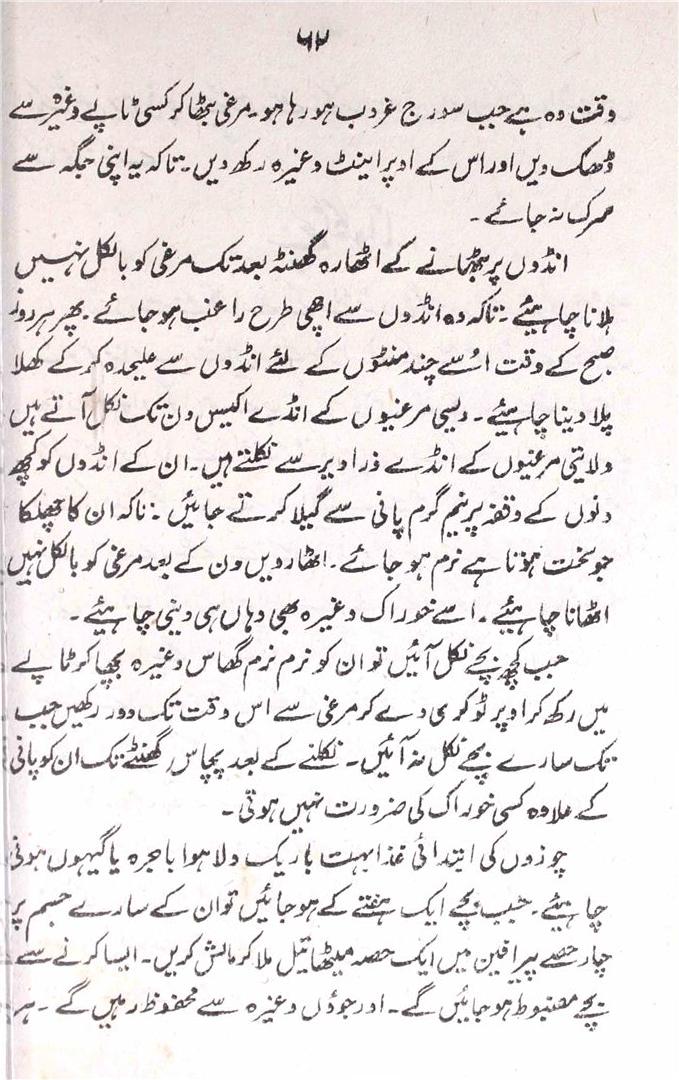 ۶۲
وقت وہ ہے جب سورج غروب ہو رہا ہو۔ مرغی بٹھا کر کسی ٹاپے وغیرہ سے
ڈھک دیں اور اس کے اوپر اینٹ وغیرہ رکھ دیں۔ تاکہ یہ اپنی جگہ سے
سرک نہ جائے۔
انڈوں پر بٹھانے کے اٹھارہ گھنٹہ بعد تک مرغی کو بالکل نہیں
ہلانا چاہیئے۔ تاکہ وہ انڈوں سے اچھی طرح راغب ہو جائے۔ پھر ہر روز
صبح کے وقت اُسے چند منٹوں کے لئے انڈوں سے علیحدہ کر کے کھلا
پلا دینا چاہیئے۔ دیسی مرغیوں کے انڈے اکیس دن تک نکل آتے ہیں
ولایتی مرغیوں کے انڈے ذرا دیر سے نکلتے ہیں۔ ان کے انڈوں کو کچھ
دنوں کے وقفہ پر نیم گرم پانی سے گیلا کرتے جائیں۔ تاکہ ان کا چھلکا
جو سخت ہوتا ہے نرم ہو جائے۔ اٹھارویں دن کے بعد مرغی کو بالکل نہیں
اٹھانا چاہیئے۔ اسے خوراک وغیرہ بھی وہاں ہی دینی چاہیئے۔
جب کچھ بچے نکل آئیں تو ان کو نرم نرم گھاس وغیرہ بچھا کر ٹاپے
میں رکھ کر اوپر ٹوکری دے کر مرغی سے اس وقت تک دور رکھیں جب
تک سارے بچے نکل نہ آئیں۔ نکلنے کے بعد پچاس گھنٹے تک ان کو پانی
کے علاوہ کسی خوراک کی ضرورت نہیں ہوتی۔
چوزوں کی ابتدائی غذا بہت باریک دلا ہوا باجرہ یا گیہوں ہونی
چاہیئے۔ جب بچے ایک ہفتے کے ہو جائیں تو ان کے سارے جسم پر
چار حصے پیرافین میں ایک حصہ میٹھا تیل ملا کر مالش کریں۔ ایسا کرنے سے
بچے مضبوط ہو جائیں گے۔ اور جوؤں وغیرہ سے محفوظ رہیں گے۔ ہر